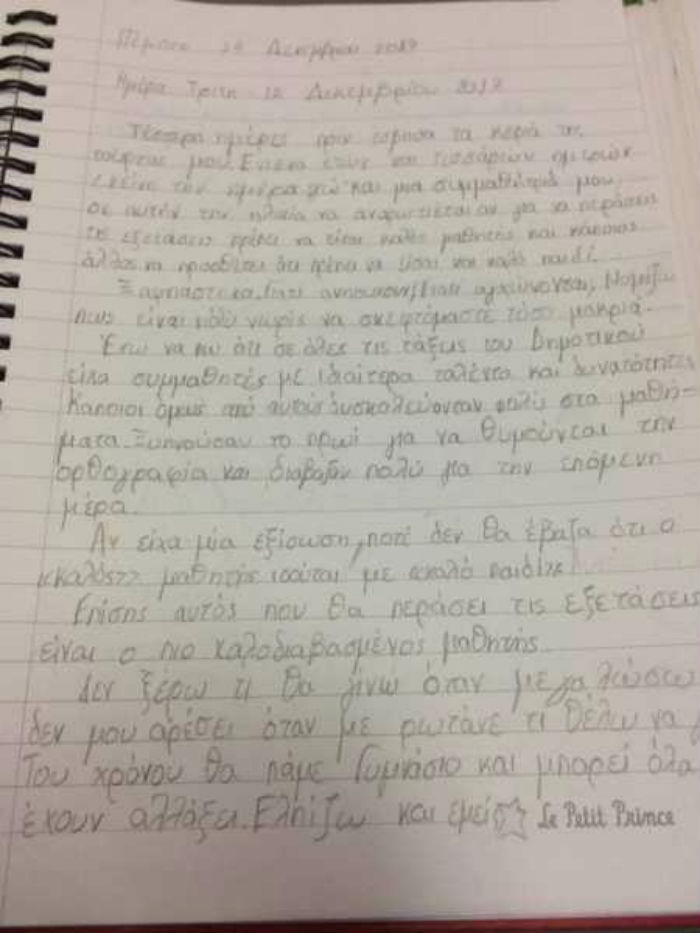 Δεκεμβρίου 2017
Ημέρα Τρίτη 12 Δεκεμβρίου 2017
Τέσσερις ημέρες πριν έσβησα τα κεριά της
τούρτας μου. και
την ημέρα εγώ και μια συμμαθήτριά μου
σε αυτήν την ηλικία να αναρωτιέται αν για να περάσεις
τις εξετάσεις πρέπει να είσαι καλός μαθητής και κάποιος
άλλος να προσθέτει ότι πρέπει να είσαι και καλό παιδί.
Νομίζω
πως είναι χωρίς να σκεφτόμαστε τόσο μακριά.
Έχω να πω ότι σε όλες τις τάξεις του Δημοτικού
είχα συμμαθητές με ιδιαίτερα ταλέντα και δυνατότητες
Κάποιοι όμως από αυτούς δυσκολεύονταν πολύ στα μαθή-
ματα. Ξυπνούσαν το πρωί για να θυμούνται την
ορθογραφία και διάβαζαν πολύ για την επόμενη
μέρα.
Αν είχα μία εξίσωση, ποτέ δεν θα έβαζα ότι ο
«καλός» μαθητής ισούται με «καλό παιδί»!
Επίσης αυτός που θα περάσει τις εξετάσεις
είναι ο πιο καλοδιαβασμένος μαθητής.
Δεν ξέρω τι θα γίνω όταν μεγαλώσω
δεν μου αρέσει όταν με ρωτάνε τι θέλω να γ
Του χρόνου θα πάμε Γυμνάσιο και μπορεί όλα
έχουν αλλάξει. Ελπίζω και εμείς Le Petit Prince